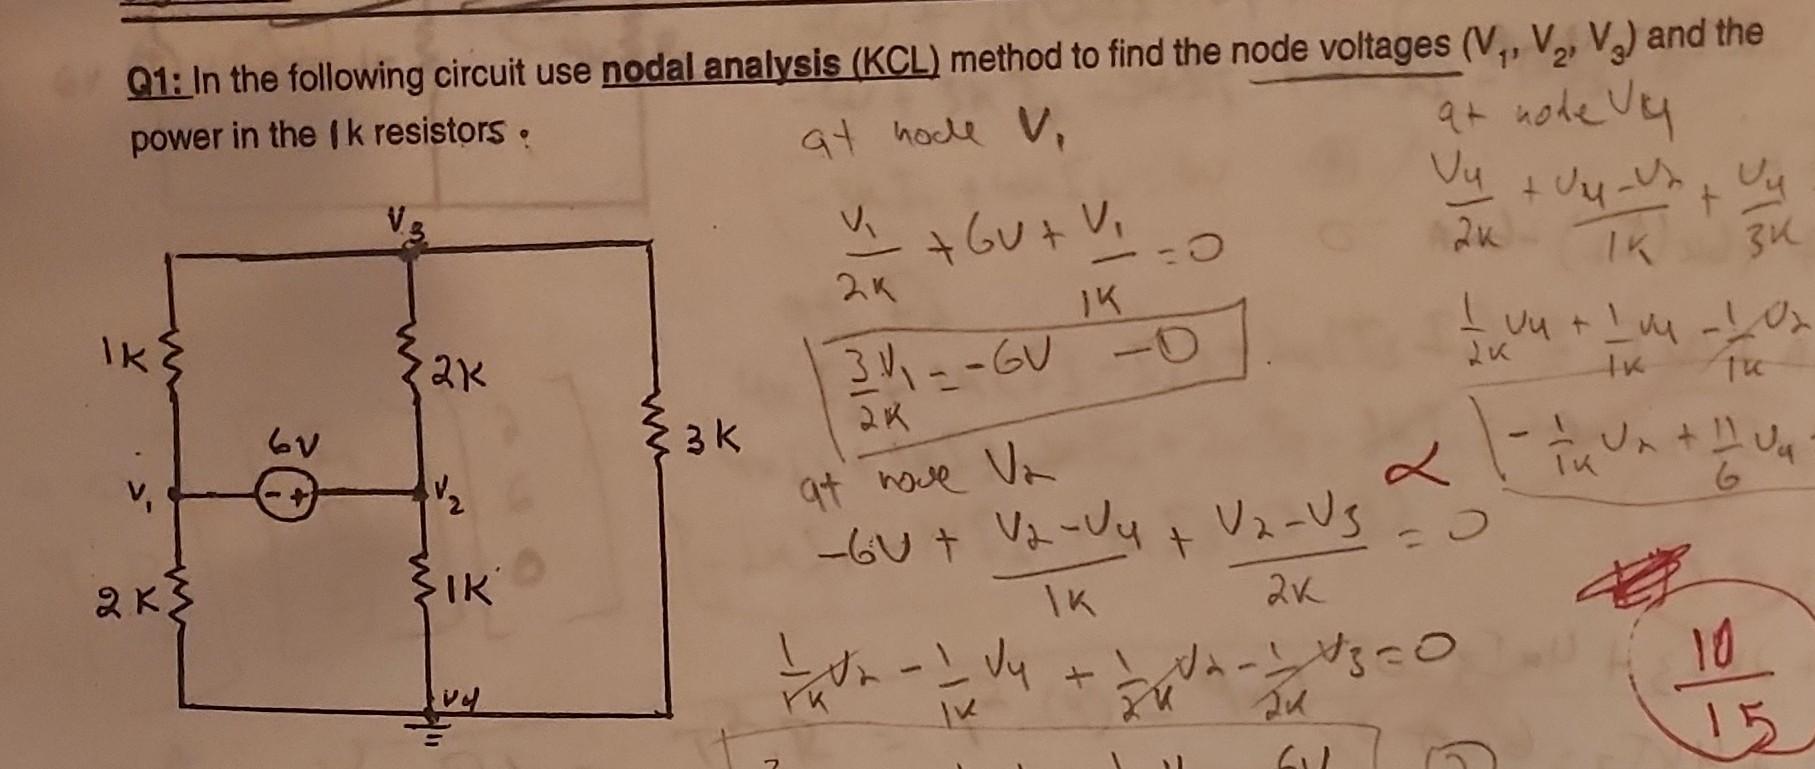 Q1: In the following circuit use nodal analysis (KCL) method to find the node voltages (V₁, V₂, V₃) and the
power in the 1k resistors :
V3
1K
2K
3K
6V
- +
V1
V2
2K
1K
V4
at node V1
V1/2K + 6V + V1/1K = 0
3/2K V1 = -6V —①
at node V2
-6V + V2-V4/1K + V2-V3/2K = 0
1/1K V2 - 1/1K V4 + 1/2K V2 - 1/2K V3 = 0
6V
at node V4
V4/2K + V4-V2/1K + V4/3K
1/2K V4 + 1/1K V4 - 1/1K V2
- 1/1K V2 + 11/6 V4
10/15